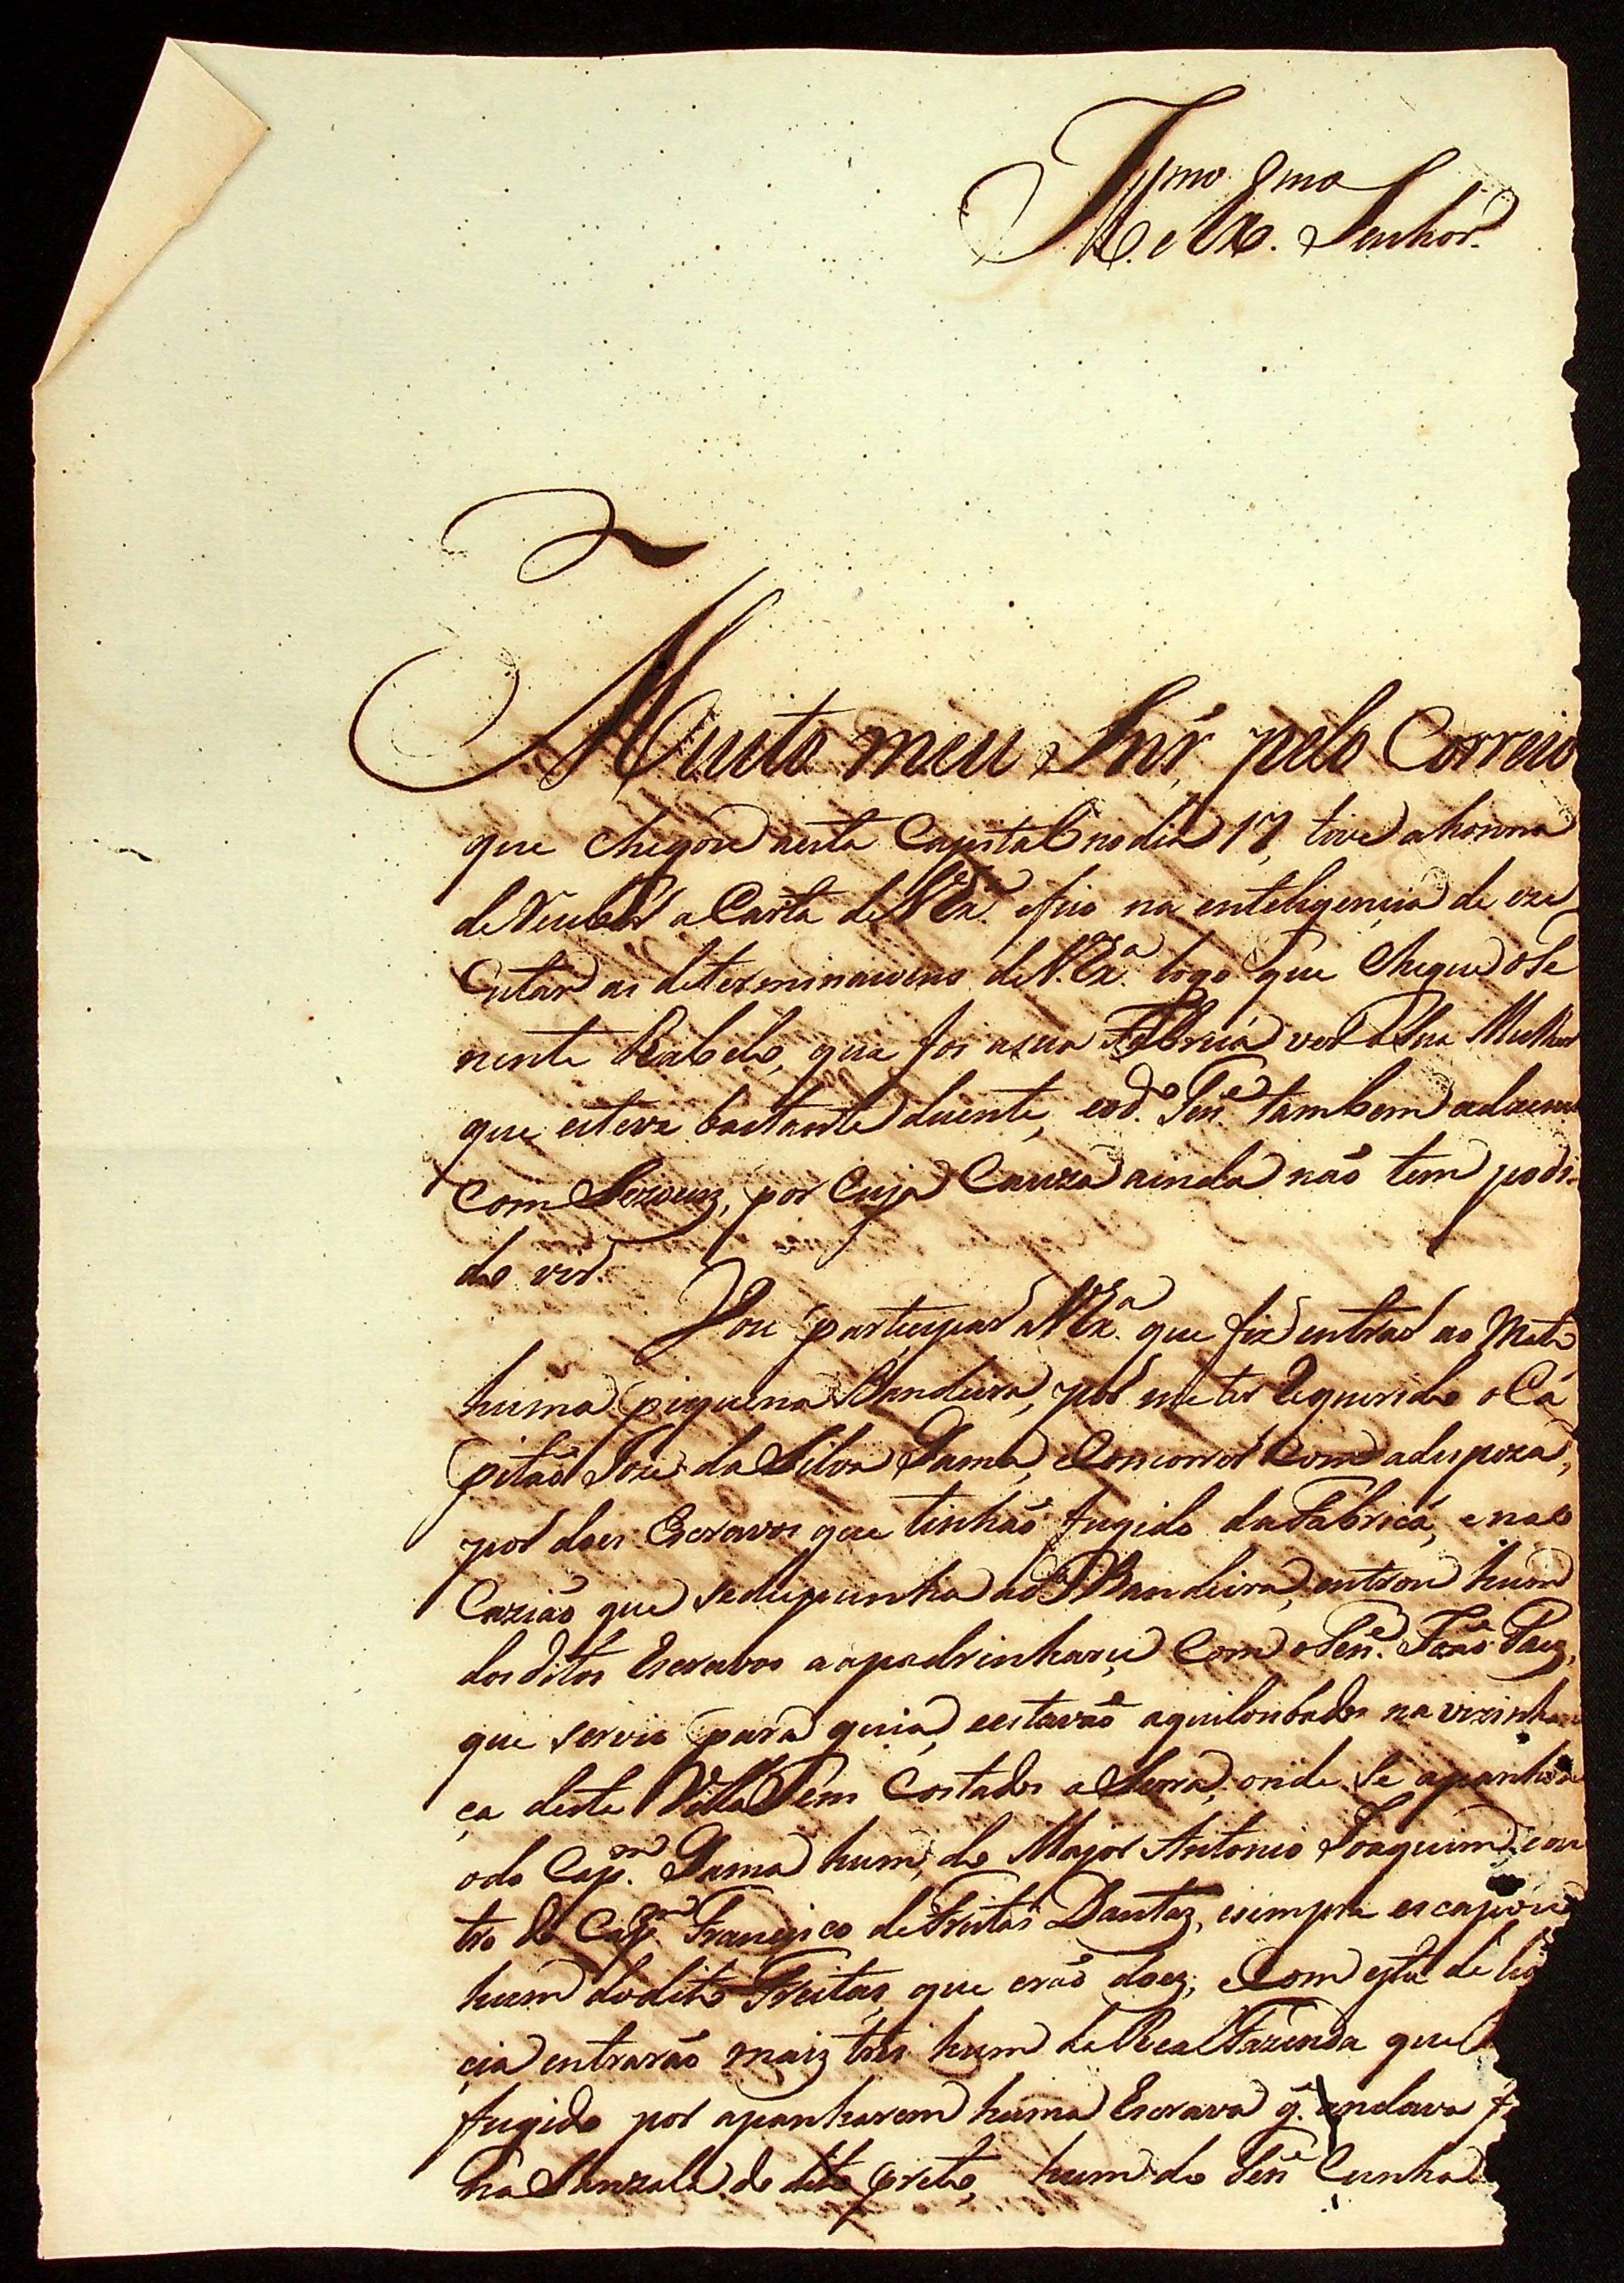 Ill.mo e Ex.mo Senhor.
Muito meu Snr̃, pelo Correio
que chegou nesta Capital no dia 17, tive a honrra
de Receber a Carta de V. Ex.a e fico na enteligencia de exe
cutar as determinaçoens de V. Ex.a logo que chegue o Te
nente Rabelo, que foi a sua Fabrica ver a Sua Mulher
que esteve bastante duente, e o d.o Ten.e tambem adueceu
com Sezoens, por cuja Cauza ainda não tem podi-
do vir.
Vou participar a V. Ex.a que fiz entrar ao Mato
huma piquena Bandeira, por me ter Requerido o Ca
pitão Joze da Silva Gama, e Concorrer com a despeza,
por dois Escravos que tinhão fugido da Fabrica, e na o
cazião que se despunha a d.a Bandeira, entrou hum
dos ditos Escravos a apadrinharse com o Ten.e João Paez,
que servio para guia, e estavão aquilonbados na vizinhan
ça deste Villa Bem Costados a Serra, onde se apanhou
o do Cap.m Gama hum, do Major Antonio Joaquim, e ou
tro do Cap.m Francisco de Freitas Dantaz, e sempre escapou
hum do dito Freitas, que erão doez; e Com esta deli
cia entrarão maiz tres hum da Real Fazenda que
fugido por apanharem huma Escrava q.e andava f
na Sanzala do dito preto, hum do Ten.e Cunha